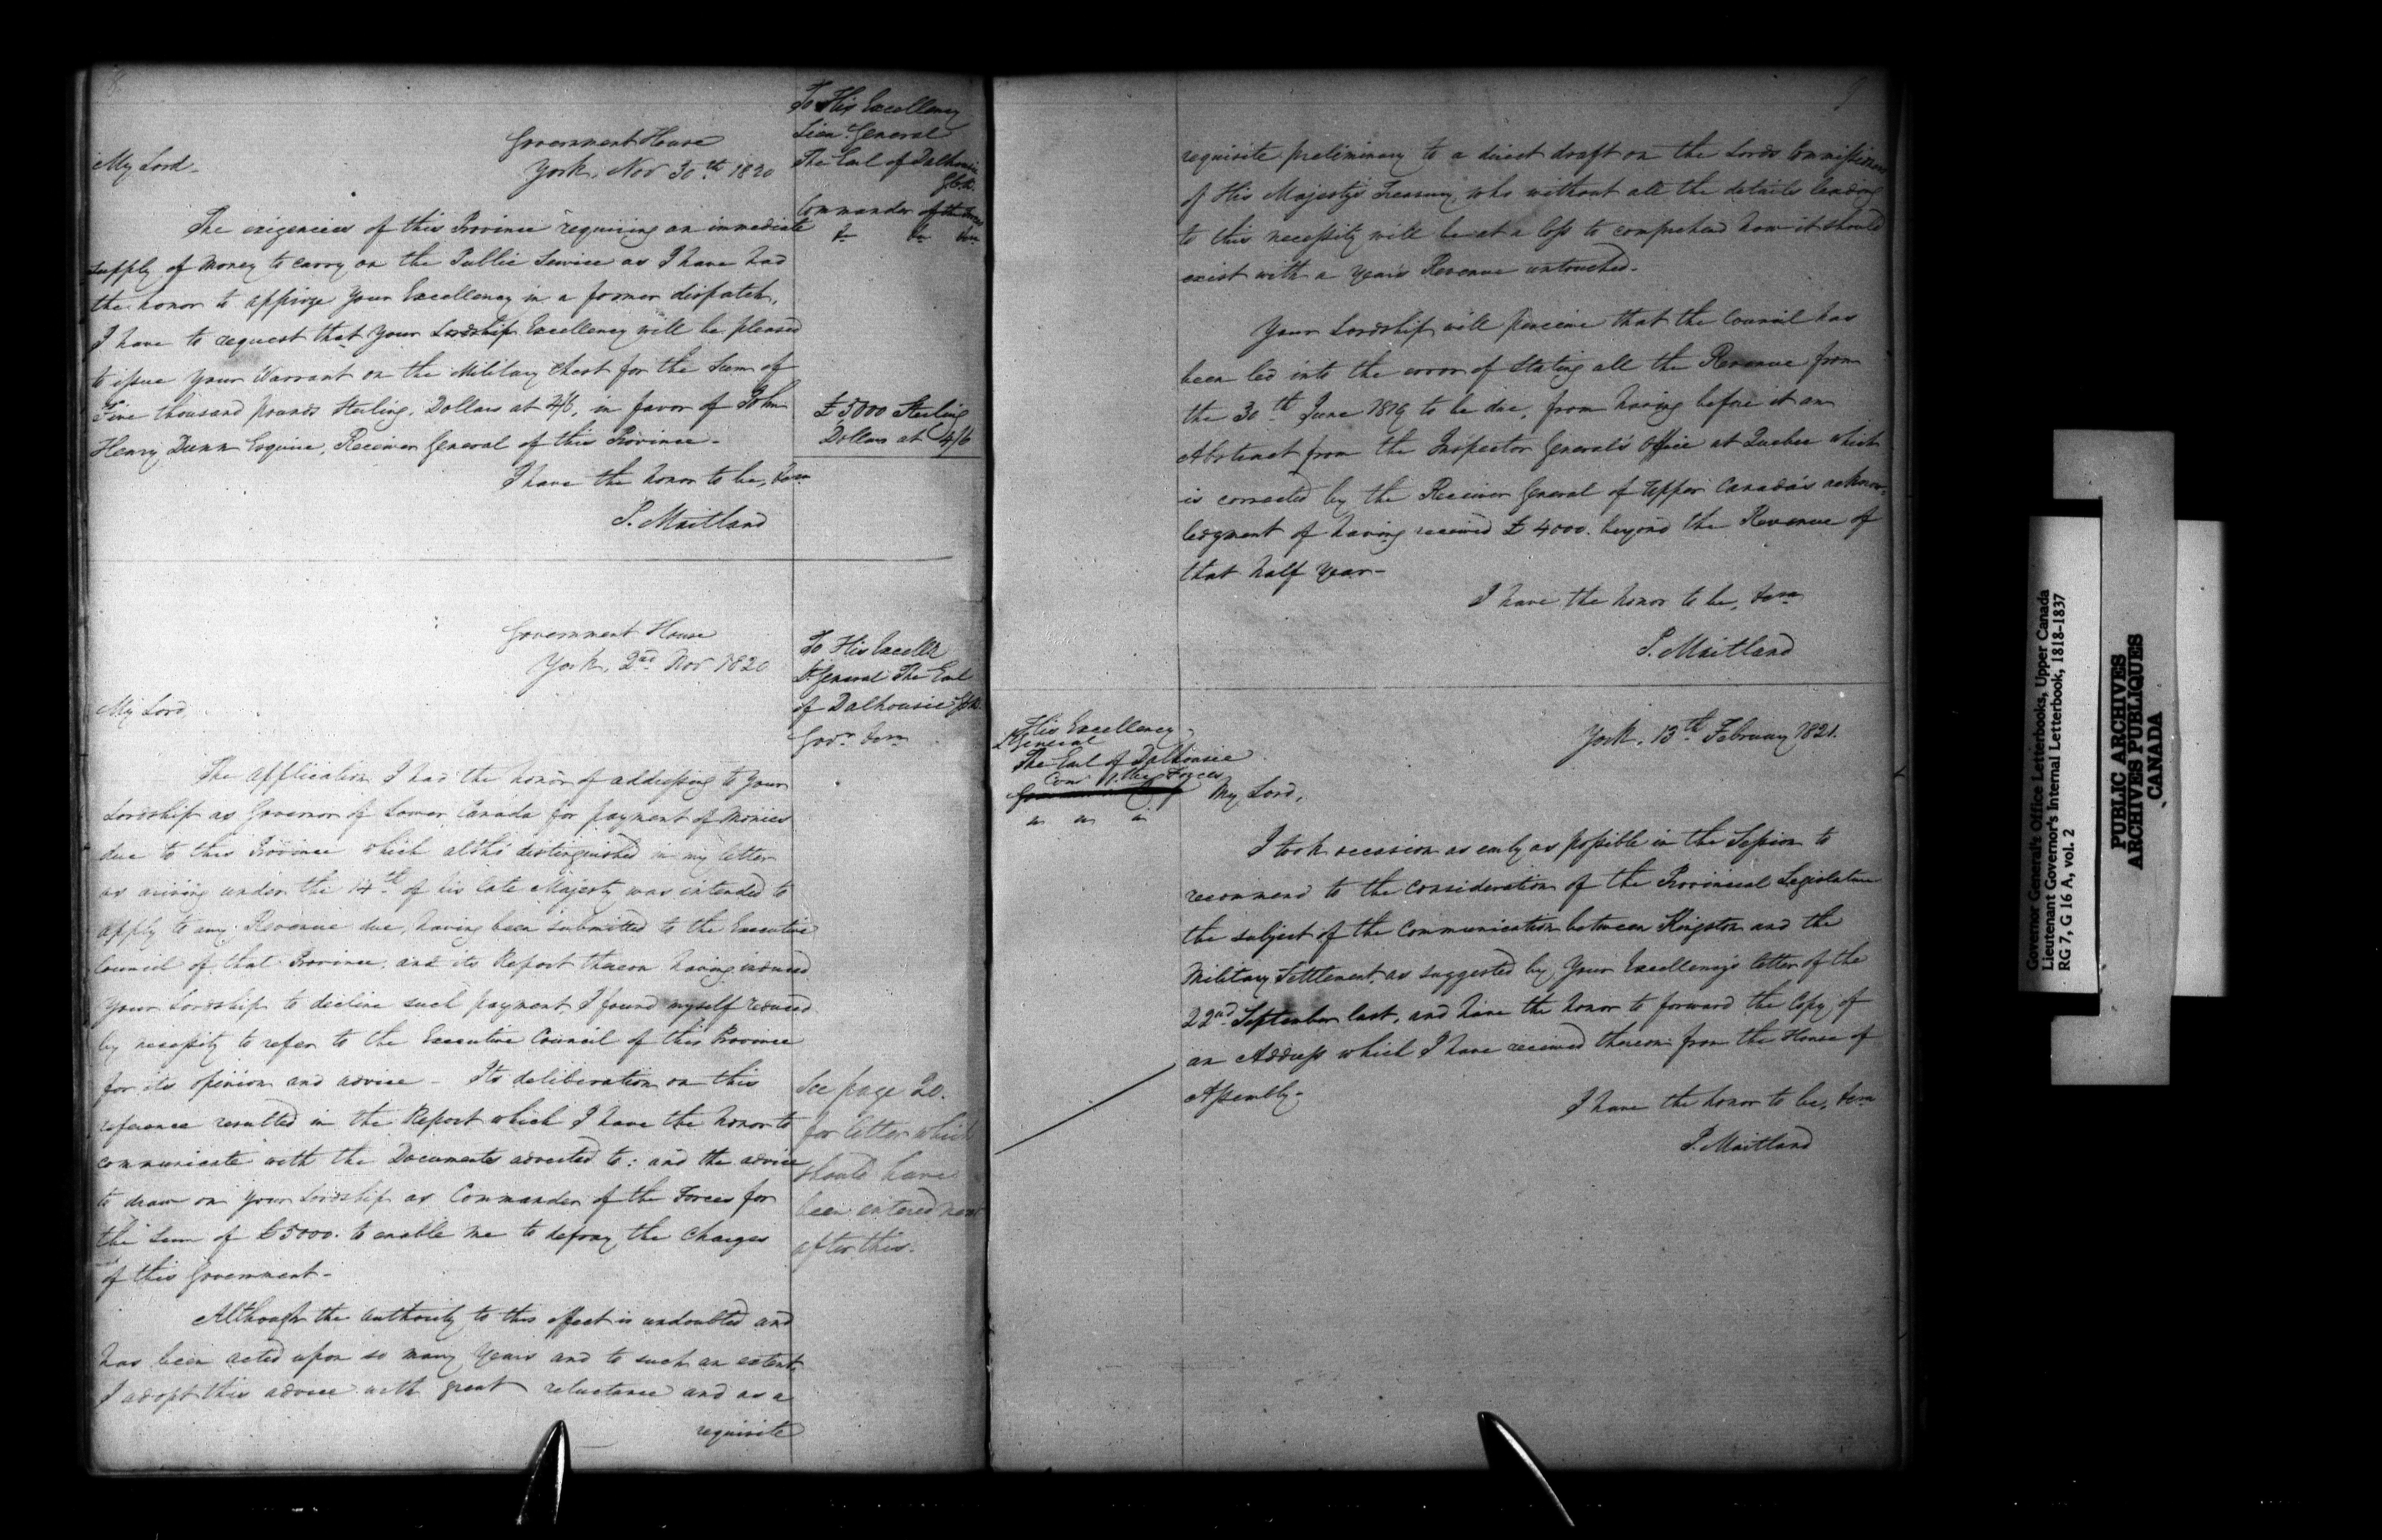 8
To His Excellency
Lieut. General
The Earl of Dalhousie
G.C.B.
Commander of the Forces
&c &c &c
Government House
York, Nov 30th 1820
My Lord-
The exigencies of this Province requiring an immediate
supply of Money to carry on the Public Service as I have had
the honor to apprize Your Excellency in a former dispatch,
I have to request that Your Lordship Excellency will be pleased
to issue Your Warrant on the Military Chest for the Sum of
Five thousand pounds Sterling, Dollars at 4/6, in favor of John
Henry Dunn Esquire, Receiver General of this Province-
£5000 Sterling
Dollars at 4/6
I have the honor to be, &ca
P. Maitland
Government House
York, 2nd Nov. 1820
To His Excelle
Lt General The Earl
of Dalhousie G.C.B.
Govr &ca
My Lord,
The application I had the honor of addressing to Your
Lordship as Governor of Lower Canada for payment of Monies
due to this Province which altho' distinguished in my letter
as arising under the 14th of his late Majesty was intended to
apply to any Revenue due, having been submitted to the Executive
Council of that Province, and its Report thereon having induced
Your Lordship to decline such payment I found myself reduced
by necessity to refer to the Executive Council of this Province
for its opinion and advice - Its deliberation on this
reference resulted in the Report which I have the honor to
communicate with the Documents adverted to; and the advice
to draw on your Lordship as Commander of the Forces for
the Sum of £5000. to enable me to defray the Charges
of this Government-
See page 20.
for letter which
should have
been entered next
after this.
Although the authority to this effect is undoubted and
has been acted upon so many Years and to such an extent,
I adopt this advice with great reluctance and as a
requisite
9
requisite preliminary to a direct draft on the Lords Commissioners
of His Majesty's Treasury, who without all the details leading
to this necessity will be at a loss to comprehend how it should
exist with a years Revenue untouched.
Your Lordship will perceive that the Council has
been led into the error of Stating all the Revenue from
the 30th June 1819 to be due, from having before it an
Abstract from the Inspector General's Office at Quebec which
is corrected by the Receiver General of Upper Canada's acknow-
ledgment of having received £4000. beyond the Revenue of
that half Year-
I have the honor to be, &ca
P. Maitland
His Excellency
Lt General
The Earl of Dalhousie
Comr of the Forces
&c &c &c
York, 13th February 1821.
My Lord,
I took occasion as early as possible in the Session to
recommend to the consideration of the Provincial Legislature
the subject of the Communication between Kingston and the
Military Settlement, as suggested by Your Excellency's letter of the
22nd September last, and have the honor to forward the Copy of
an Address which I have received thereon from the House of
Assembly-
I have the honor to be, &ca
P. Maitland
Governor General's Office Letterbooks, Upper Canada
Lieutenant Governor's Internal Letterbook, 1818-1837
RG 7, G 16 A, vol. 2
PUBLIC ARCHIVES
ARCHIVES PUBLIQUES
CANADA